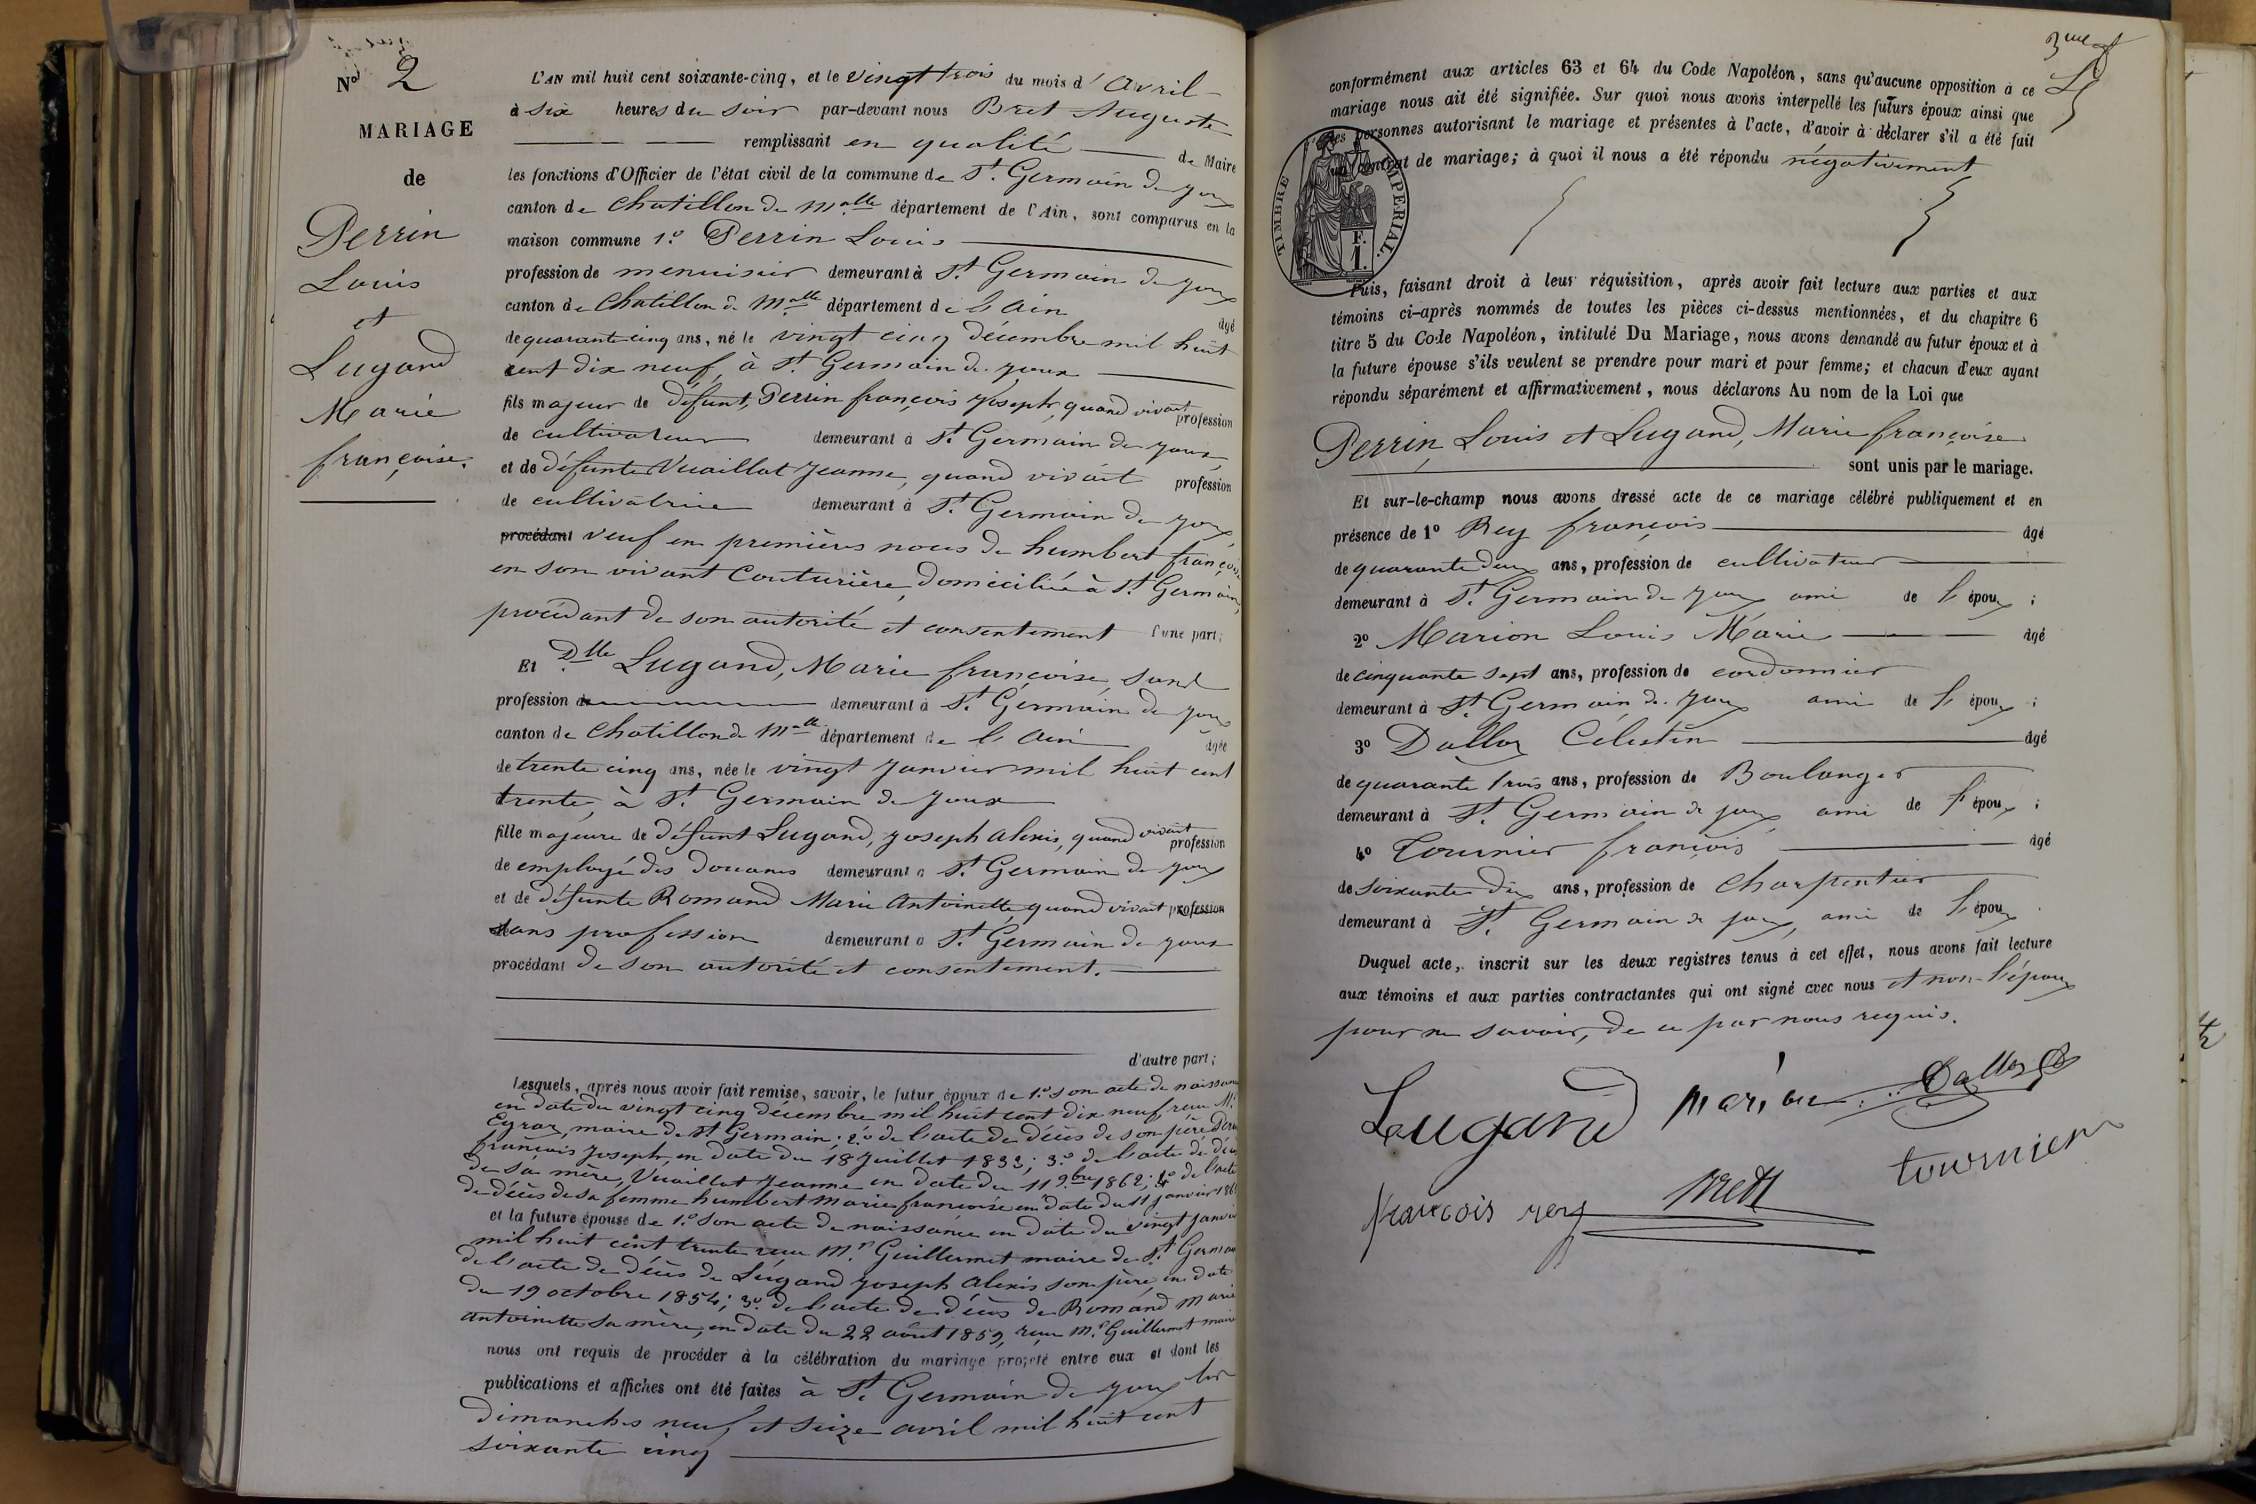 No 2
MARIAGE
de
Perrin
Louis
et
Lugand
Marie
françoise.
L'AN mil huit cent soixante-cinq, et le vingt trois du mois d'avril
à six heures du soir par-devant nous Bret Auguste
remplissant en qualité de Maire
les fonctions d'Officier de l'état civil de la commune de St. Germain de joux
canton de Chatillon de Malle département de l'Ain, sont comparus en la
maison commune 1.o Perrin Louis
profession de menuisier demeurant à St Germain de joux
canton de Chatillon d. Malle département de l'Ain âgé
de quarante cinq ans, né le vingt cinq décembre mil huit
cent dix neuf, à St. Germain de joux
fils majeur de défunt, Perrin françois Joseph, quand vivait profession
de cultivateur demeurant à St Germain de joux,
et de défunte Vuaillat Jeanne, quand vivait profession
de cultivatrice demeurant à St. Germain de joux,
procédant veuf en premières noces de humbert françoise
en son vivant Couturière, domiciliée à St. Germain,
procédant de son autorité et consentement d'une part;
Et Dlle Lugand, Marie françoise, sans
profession de demeurant à St. Germain de joux
canton de Chatillon d. Malle département de l'Ain âgée
de trente cinq ans, née le vingt Janvier mil huit cent
trente, à St. Germain de Joux
fille majeure de défunt Lugand, Joseph Alexis, quand vivait profession
de employé des Douanes demeurant à St. Germain de joux
et de défunte Romand Marie Antoinette quand vivait profession
sans profession demeurant à St. Germain de joux
procédant de son autorité et consentement.
d'autre part;
Lesquels, après nous avoir fait remise, savoir, le futur époux de 1.o son acte de naissance
en date du vingt cinq décembre mil huit cent dix neuf reçu Mr
maire de St Germain; 2.o de l'acte de décès de son père Perrin
françois Joseph, en date du 18 Juillet 1833; 3.o de l'acte de décès
de sa mère, Vuaillat Jeanne en date du 11 9.bre 1862; 4o de l'acte
de décès de sa femme humbert Marie françoise en date du 11 janvier
et la future épouse de 1.o son acte de naissance en date du vingt janvier
mil huit cent trente reçu M.r Guillermet maire de St Germain
de l'acte de décès de Lugand Joseph Alexis son père, en date
du 19 octobre 1854; 3o. de l'acte de décès de Romand Marie
antoinette sa mère, en date du 22 août 1859, reçu M.r Guillermet maire
nous ont requis de procéder à la célébration du mariage projeté entre eux et dont les
publications et affiches ont été faites à St. Germain de joux les
dimanches neuf et seize avril mil huit cent
soixante cinq
3me
conformément aux articles 63 et 64 du Code Napoléon, sans qu'aucune opposition à ce
mariage nous ait été signifiée. Sur quoi nous avons interpellé les futurs époux ainsi que
les personnes autorisant le mariage et présentes à l'acte, d'avoir à déclarer s'il a été fait
un contrat de mariage; à quoi il nous a été répondu négativement
TIMBRE IMPERIAL.
F.
1.
Puis, faisant droit à leur réquisition, après avoir fait lecture aux parties et aux
témoins ci-après nommés de toutes les pièces ci-dessus mentionnées, et du chapitre 6
titre 5 du Code Napoléon, intitulé Du Mariage, nous avons demandé au futur époux et à
la future épouse s'ils veulent se prendre pour mari et pour femme; et chacun d'eux ayant
répondu séparément et affirmativement, nous déclarons Au nom de la Loi que
Perrin, Louis et Lugand, Marie françoise
sont unis par le mariage.
Et sur-le-champ nous avons dressé acte de ce mariage célébré publiquement et en
présence de 1o Rey françois âgé
de quarante deux ans, profession de cultivateur
demeurant à St. Germain de joux ami de l'époux;
2o Marion Louis Marie âgé
de cinquante sept ans, profession de cordonnier
demeurant à St. Germain de. Joux ami de l'époux;
3o Dalloz Célestin âgé
de quarante trois ans, profession de Boulanger
demeurant à St. Germain de joux ami de l'époux;
4o Tournier françois âgé
de soixante dix ans, profession de Charpentier
demeurant à St. Germain de joux, ami de l'époux.
Duquel acte, inscrit sur les deux registres tenus à cet effet, nous avons fait lecture
aux témoins et aux parties contractantes qui ont signé avec nous et non l'époux
pour ne savoir, de ce par nous requis.
Lugand marion Dalloz C
françois rey Bret tournier